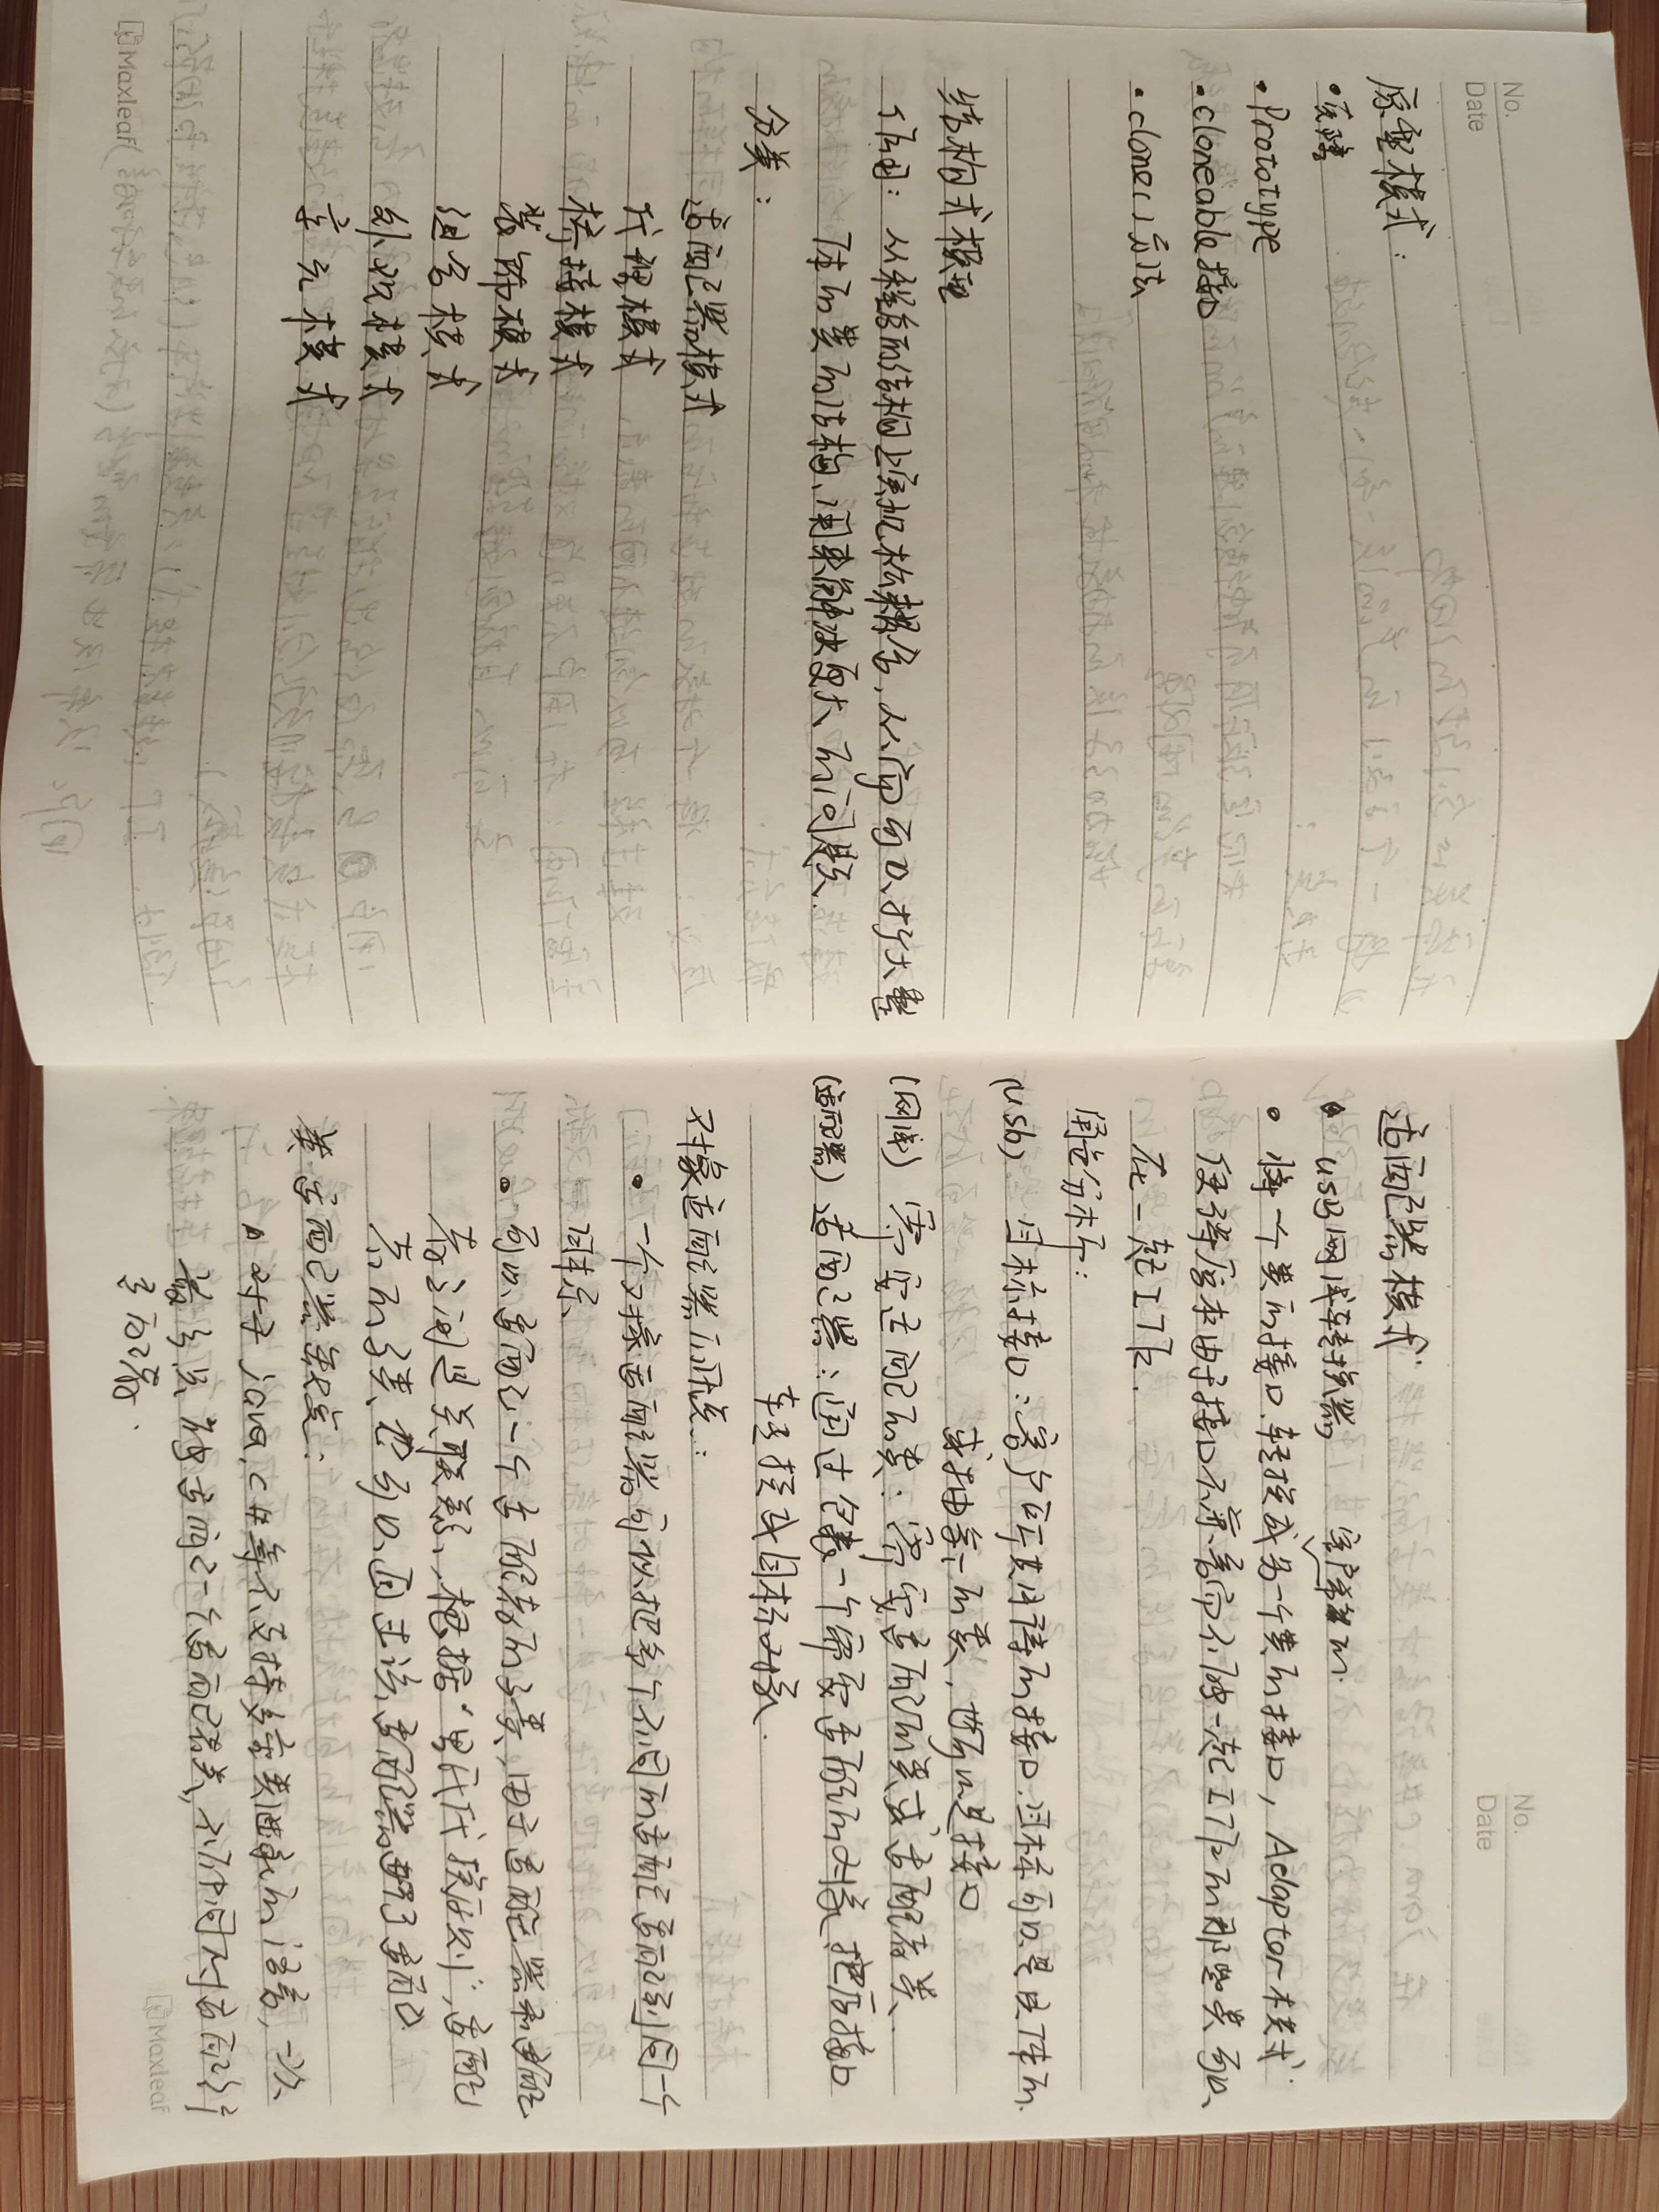 No.
Date
原型模式:
• 克隆
• Prototype
• cloneable接口
• clone()方法
结构式模型
作用: 从程序的结构上实现松耦合,从而可以扩大整
体的类的结构,用来解决更大的问题.
分类:
适配器模式
代理模式
桥接模式
装饰模式
组合模式
外观模式
享元模式
Maxleaf
No.
Date
适配器模式:
• USB网线转换器
客户希望的
• 将一个类的接口转换成另一个类的接口, Adapter模式
使得原本由于接口不兼容而不能一起工作的那些类可以
在一起工作.
角色分析:
(usb) 目标接口:客户所期待的接口.目标可以是具体的
或抽象的类,也可以是接口
(网线) 需要适配的类:需要适配的类或适配者类.
(适配器) 适配器:通过包装一个需要适配的对象,把原接口
转换成目标对象.
对象适配器优点:
• 一个对象适配器可以把多个不同的适配者适配到同一个
目标
• 可以适配一个适配者的子类,由于适配器和适配
者之间是关联关系,根据"里氏代换原则",适配
者的子类也可以通过该适配器进行适配.
类适配器缺点:
• 对于java,C#等不支持多重类继承的语言,一次
最多只能适配一个适配者类,不能同时适配多个
适配者.
Maxleaf